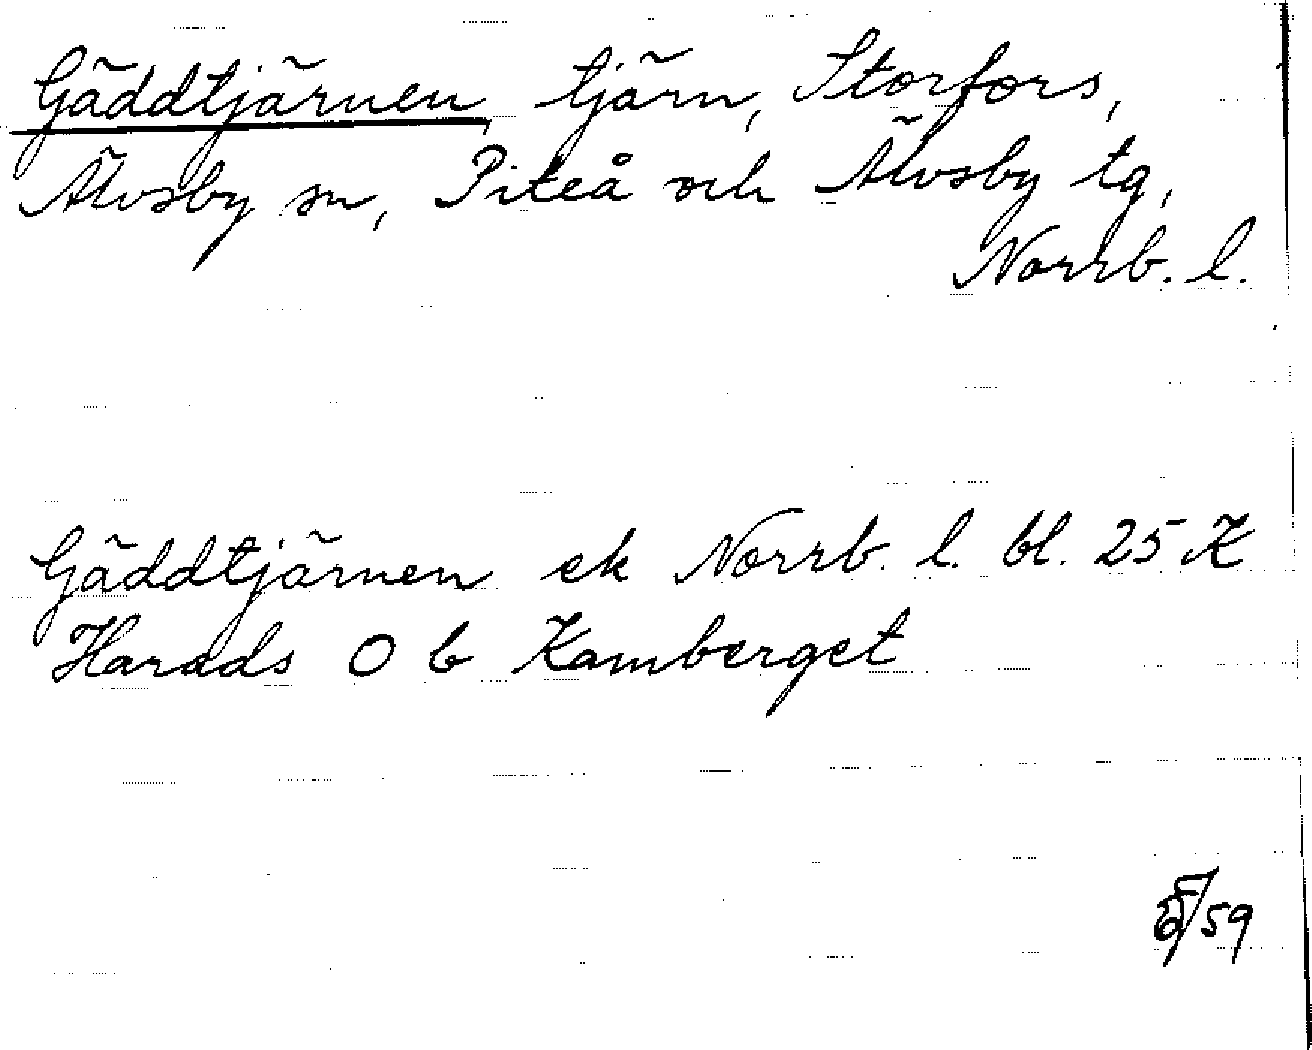 Gäddtjärnen, tjärn, Storfors,
Älvsby sn, Piteå och Älvsby tg,
Norrb. l.
Gäddtjärnen ek Norrb. l. bl. 25 K
Harads O b Kamberget
/59